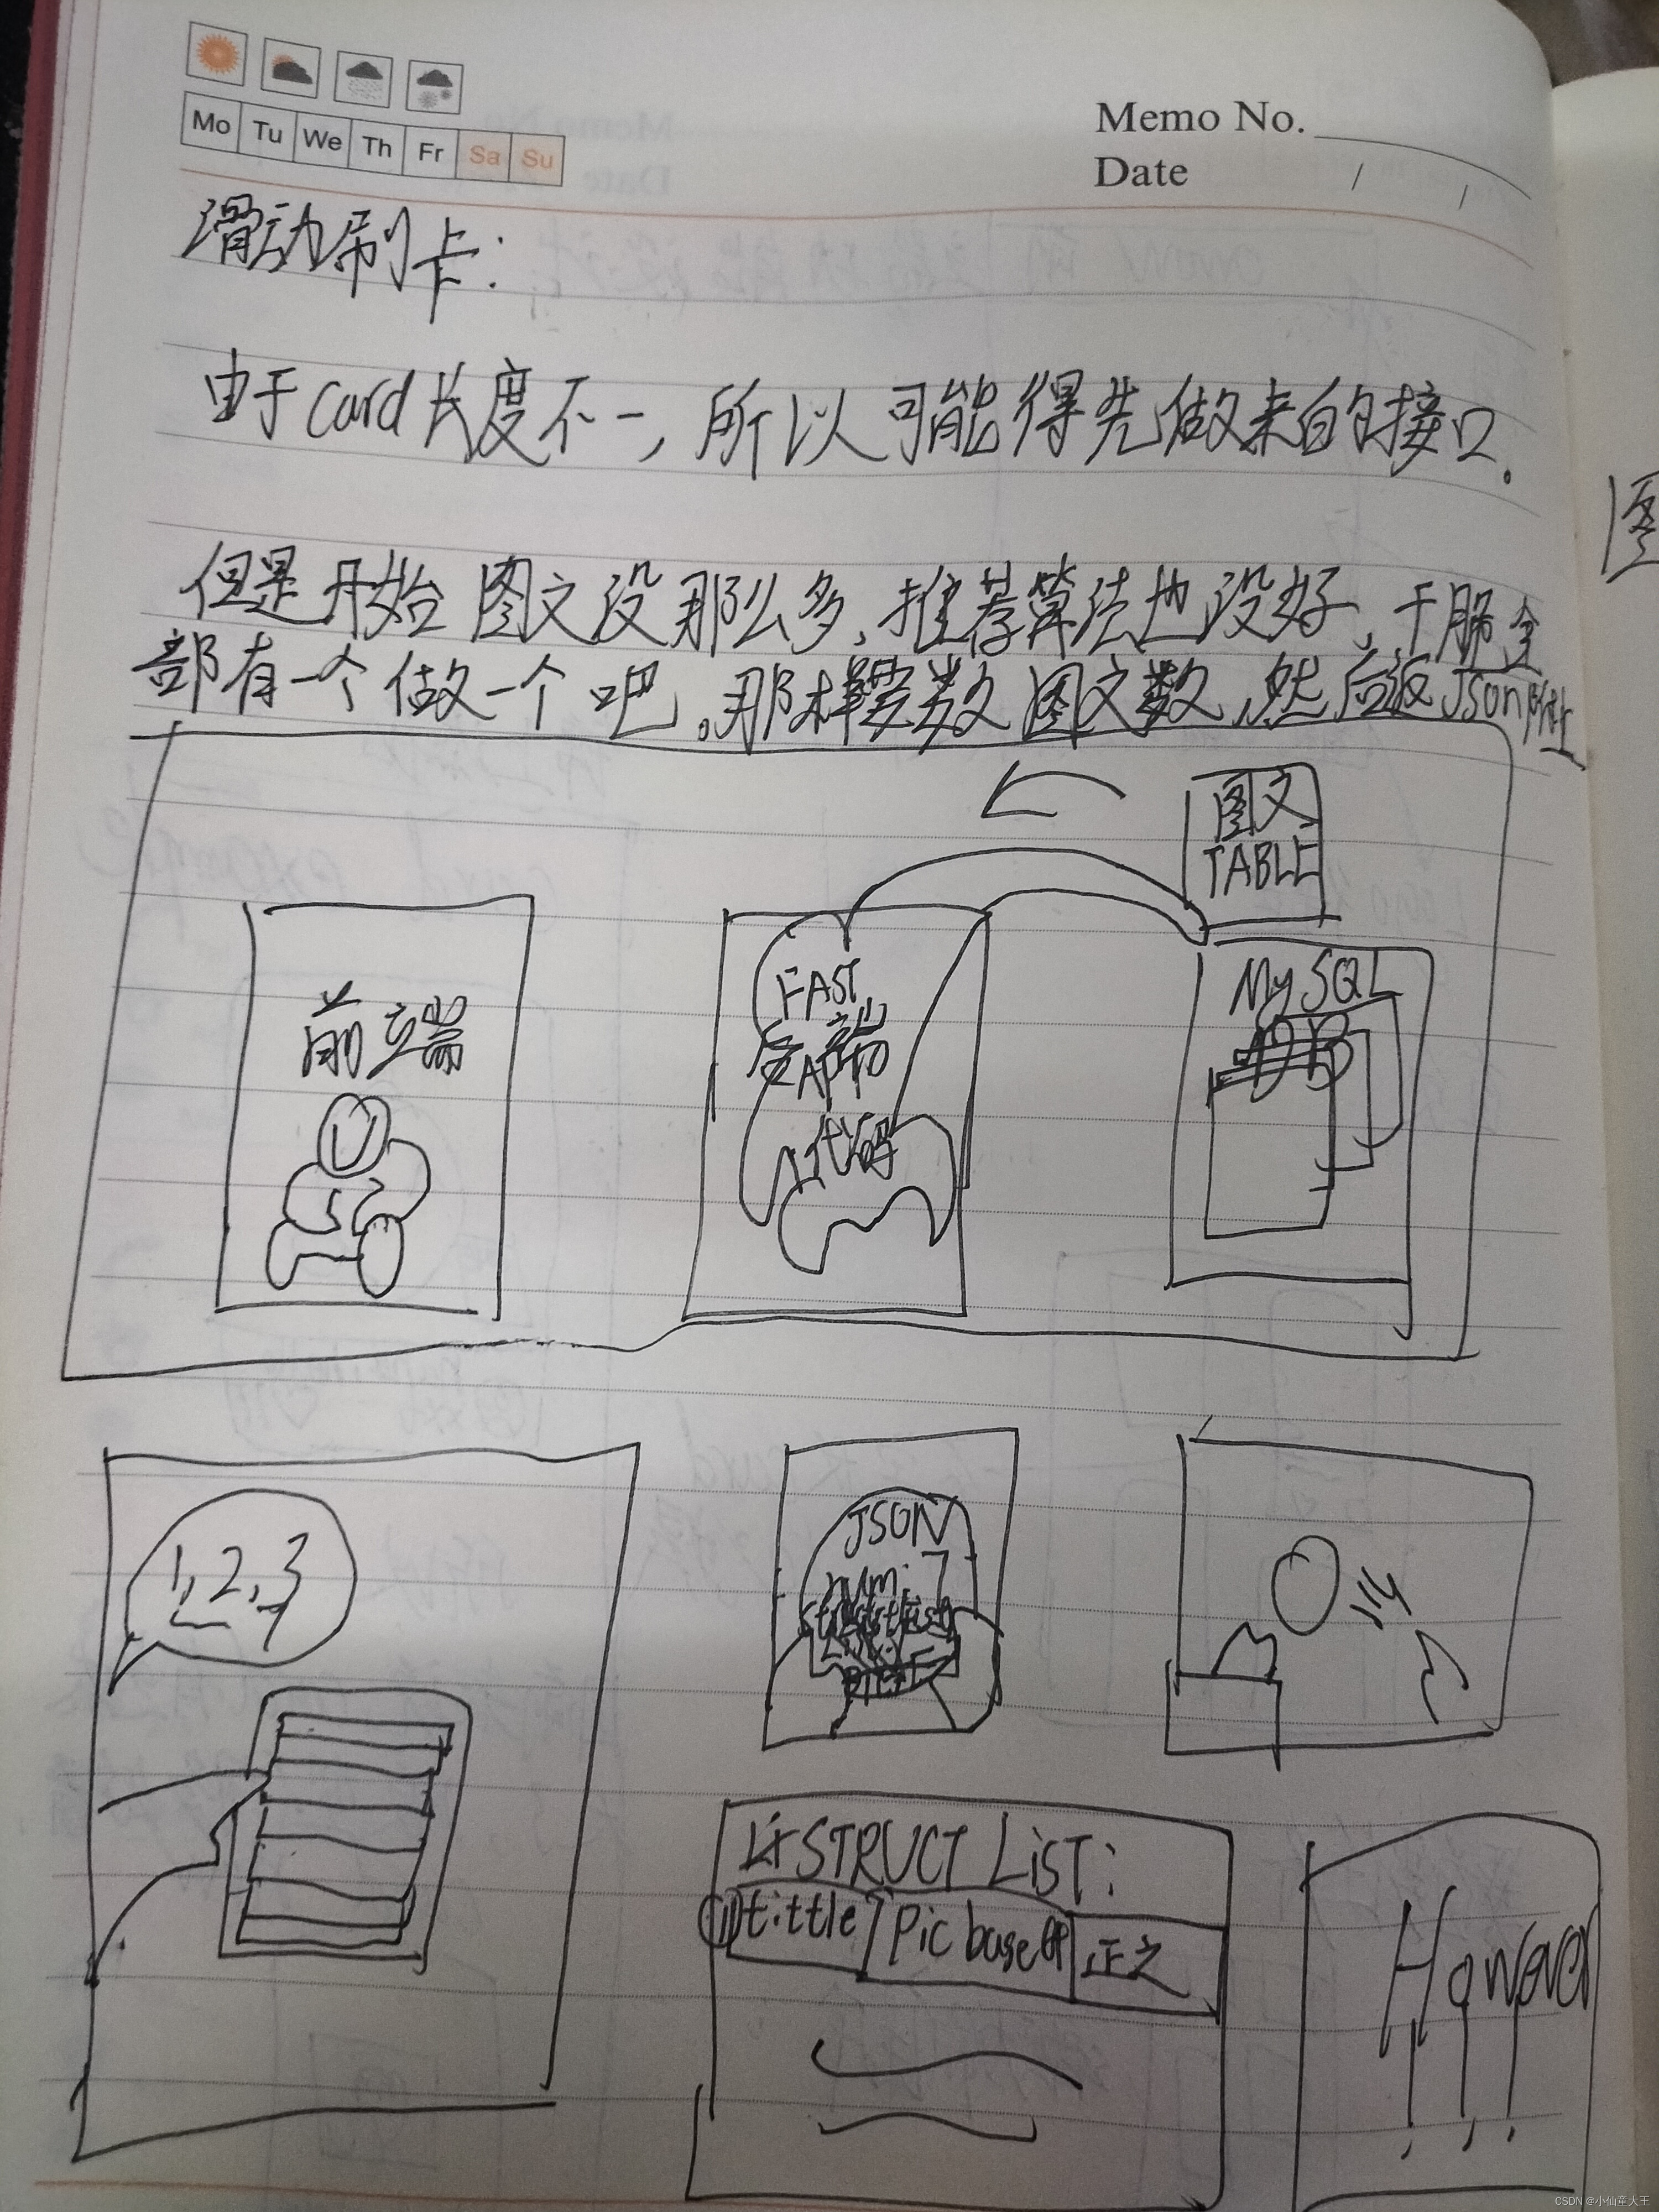 Mo Tu We Th Fr Sa Su
Memo No.
Date / /
滑动刷卡:
由于card长度不一,所以可能得先做来自的接口。
但是开始图文没那么多,推荐算法也没好,干脆全
部有一个做一个吧。那样要数图文数,然后返Json
图
图文
TABLE
前端
FAST
后端
API
代码
MySQL
1,2,3
JSON
num:7
STRUCT LiST:
tittle
Pic base64
正文
However
CSDN @小仙童大王